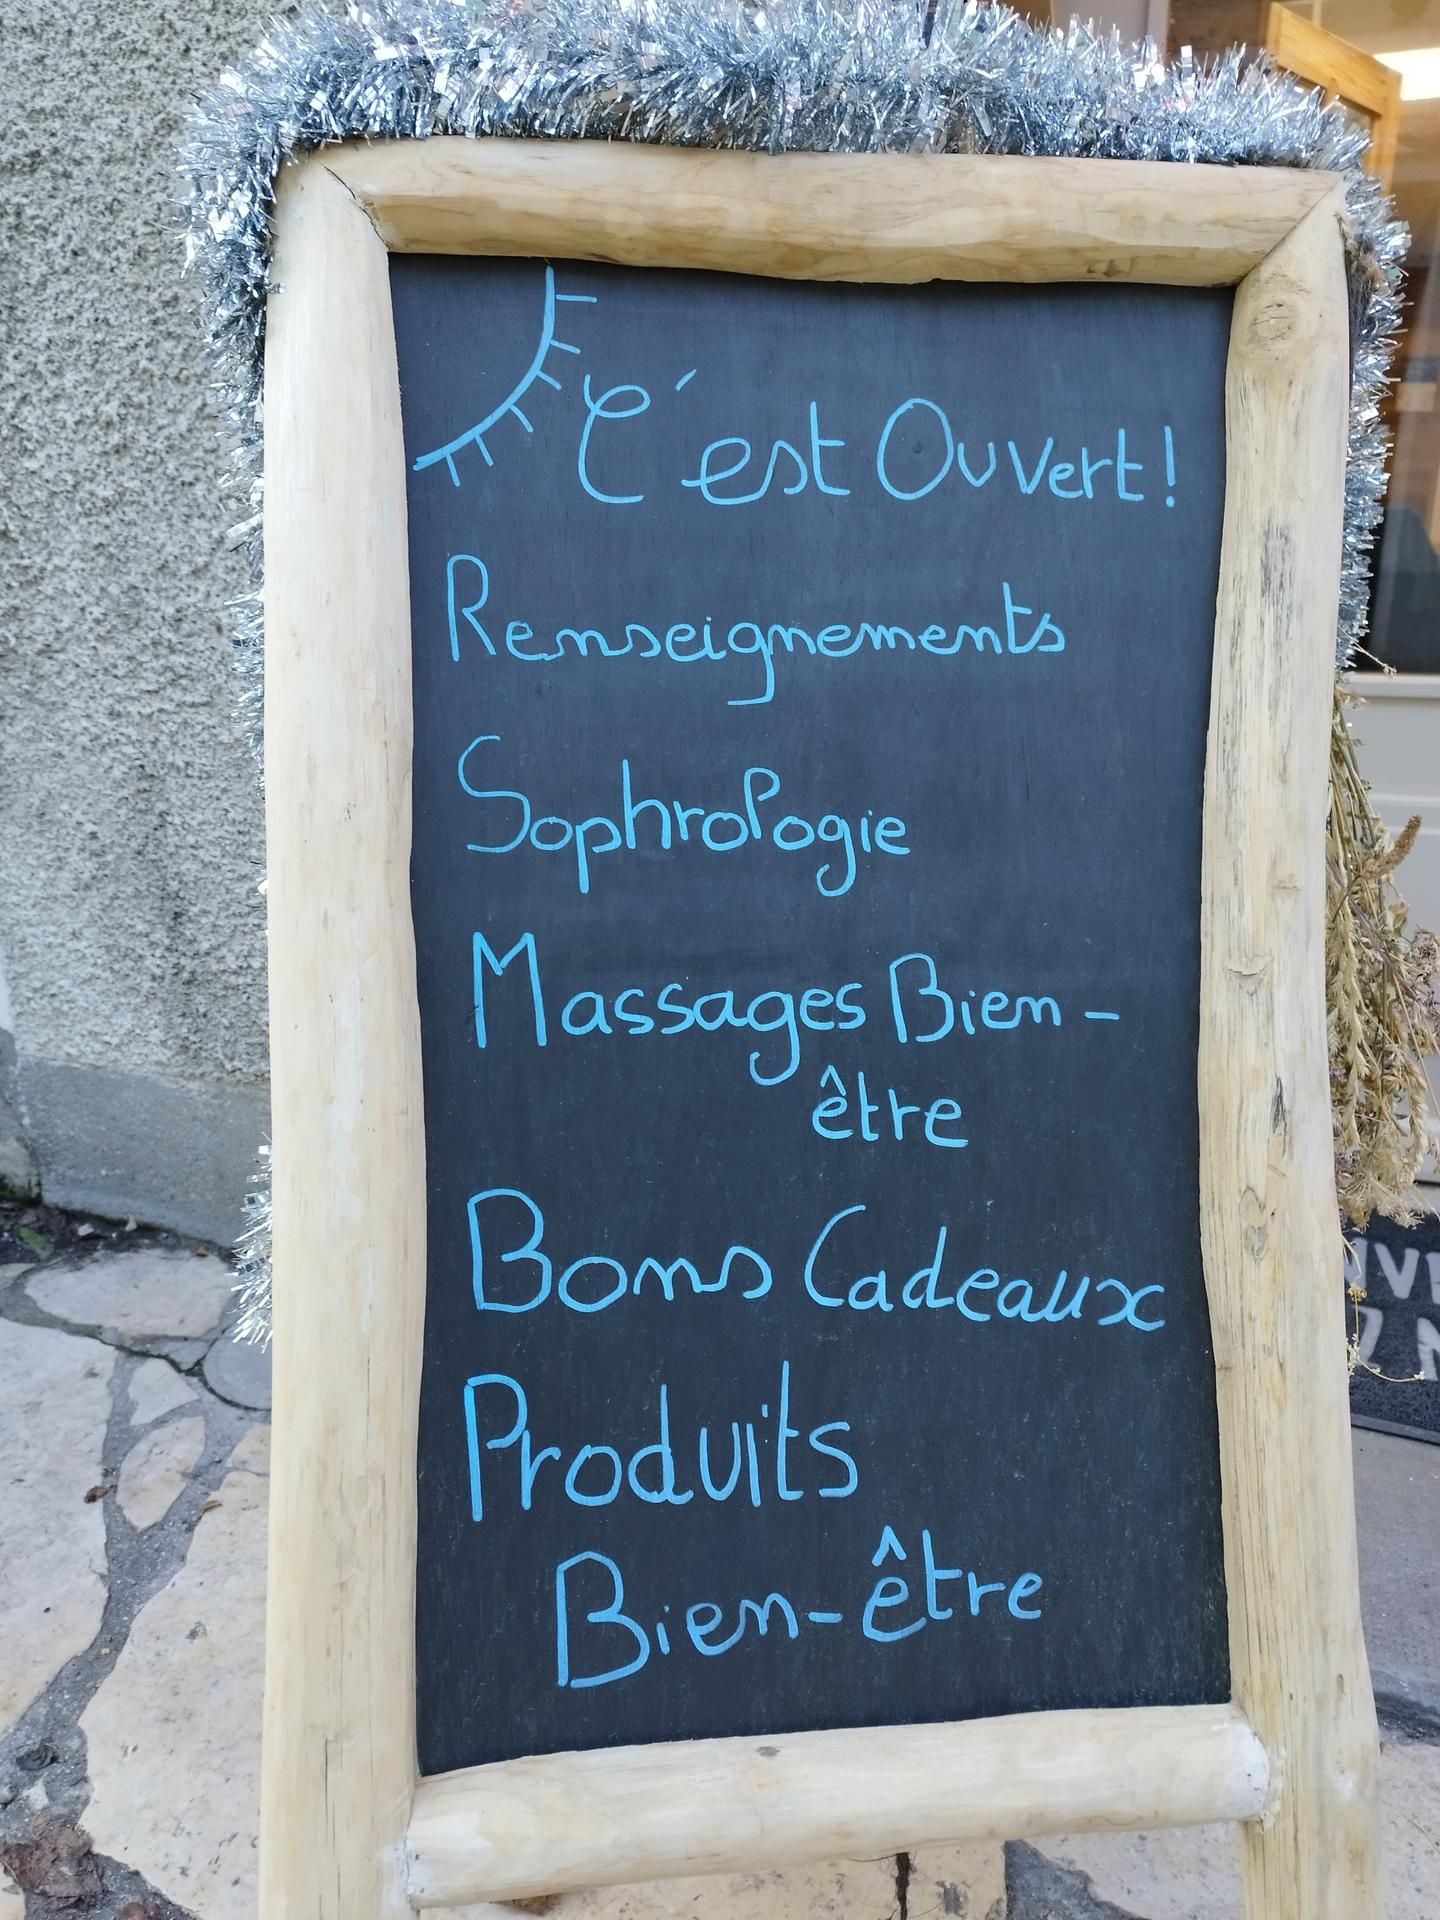 C'est Ouvert!
Renseignements
Sophrologie
Massages Bien-
être
Bons Cadeaux
Produits
Bien-être